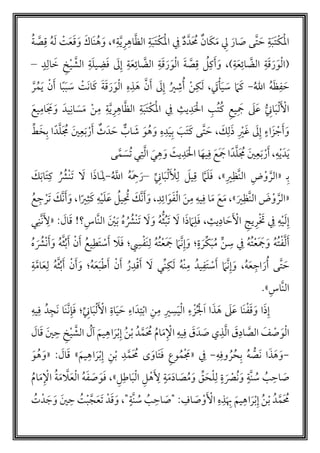 الْمَكْتَبَةِ حَتَّى صَارَ لِي مَكَانٌ مُحَدَّدٌ فِي الْمَكْتَبَةِ الظَّاهِرِيَّةِ»، وَهُنَاكَ وَقَعَتْ لَهُ قِصَّةُ
(الْوَرَقَةِ الضَّائِعَةِ)، وَأَكِلُ قِصَّةَ الْوَرَقَةِ الضَّائِعَةِ إِلَى فَضِيلَةِ الشَّيْخِ خَالِدٍ –
حَفِظَهُ اللَّهُ- كَمَا سَيَأْتِي، لَكِنْ أُشِيرُ إِلَى أَنَّ هَذِهِ الْوَرَقَةَ كَانَتْ سَبَبًا أَنْ يَمُرَّ
الْأَلْبَانِيُّ عَلَى جَمِيعِ كُتُبِ الْحَدِيثِ فِي الْمَكْتَبَةِ الظَّاهِرِيَّةِ مِنْ مَسَانِيدَ وَمَجَامِيعَ
وَأَجْزَاءٍ إِلَى غَيْرِ ذَلِكَ، حَتَّى كَتَبَ بِيَدِهِ وَهُوَ شَابٌّ تَحْدَ أَرْبَعِينَ مُجَلَّدًا بِخَطِّ
يَدَيْهِ، أَرْبَعِينَ مُجَلَّدًا جَمَعَ فِيهَا الْحَدِيثَ وَهِيَ الَّتِي تُسَمَّى
بِـ «الرَّوْضُ النَّظِير»، فَلَمَّا قِيلَ لِلْأَلْبَانِيِّ -رَحِمَهُ اللَّهُ- لِمَاذَا لَمْ تَنْشُرْ كِتَابَكَ
«الرَّوْضَ النَّظِيرَ»، مَعَ مَا فِيهِ مِنَ الْفَوَائِدِ، وَأَنَّكَ تُحِيلُ عَلَيْهِ كَثِيرًا، وَأَنَّكَ تَرْجِعُ
إِلَيْهِ فِي تَخْرِيجِ الْأَحَادِيثِ، فَلِمَاذَا لَا تَبُثُّهُ وَلَا تَنْشُرُهُ بَيْنَ النَّاسِ؟! قَالَ: «لِأَنَّنِي
أَلَّفْتُهُ وَجَمَعْتُهُ فِي سِنٍّ مُبَكِّرَةٍ؛ وَإِنَّمَا جَمَعْتُهُ لِنَفْسِي؛ فَلَا أَسْتَطِيعُ أَنْ أَبُثَّهُ وَأَنْشُرَهُ
حَتَّى أُرَاجِعَهُ، وَإِنَّمَا أَسْتَفِيدُ مِنْهُ لَكِنِّي لَا أَقْدِرُ أَنْ أَطْبَعَهُ؛ وَأَنْ أَبُثَّهُ لِعَامَّةِ
النَّاسِ».
إِذًا وَقَفْنَا عَلَى هَذَا الْجُزْءِ الْيَسِيرِ مِنَ ابْتِدَاءِ حَيَاةِ الْأَلْبَانِيِّ؛ فَإِنَّنَا نَجِدُ فِيهِ
الْوَصْفَ الصَّادِقَ الَّذِي صَدَقَ فِيهِ الْإِمَامُ مُحَمَّدُ بْنُ إِبْرَاهِيمَ آلُ الشَّيْخِ حِينَ قَالَ
-وَهَذَا نَصُّهُ بِحُرُوفِهِ- فِي «مَجْمُوعِ فَتَاوَى مُحَمَّدِ بْنِ إِبْرَاهِيمَ» قَالَ: «وَهُوَ
صَاحِبُ سُنَّةٍ وَنُصْرَةٍ لِلْحَقِّ وَمُصَادَمَةٍ لِأَهْلِ الْبَاطِلِ»، فَوَصَفَهُ الْعَلَّامَةُ الْإِمَامُ
مُحَمَّدُ بْنُ إِبْرَاهِيمَ بِهَذِهِ الْأَوْصَافِ: "صَاحِبُ سُنَّةٍ"، وَقَدْ تَعَجَّبْتُ حِينَ وَجَدْتُ